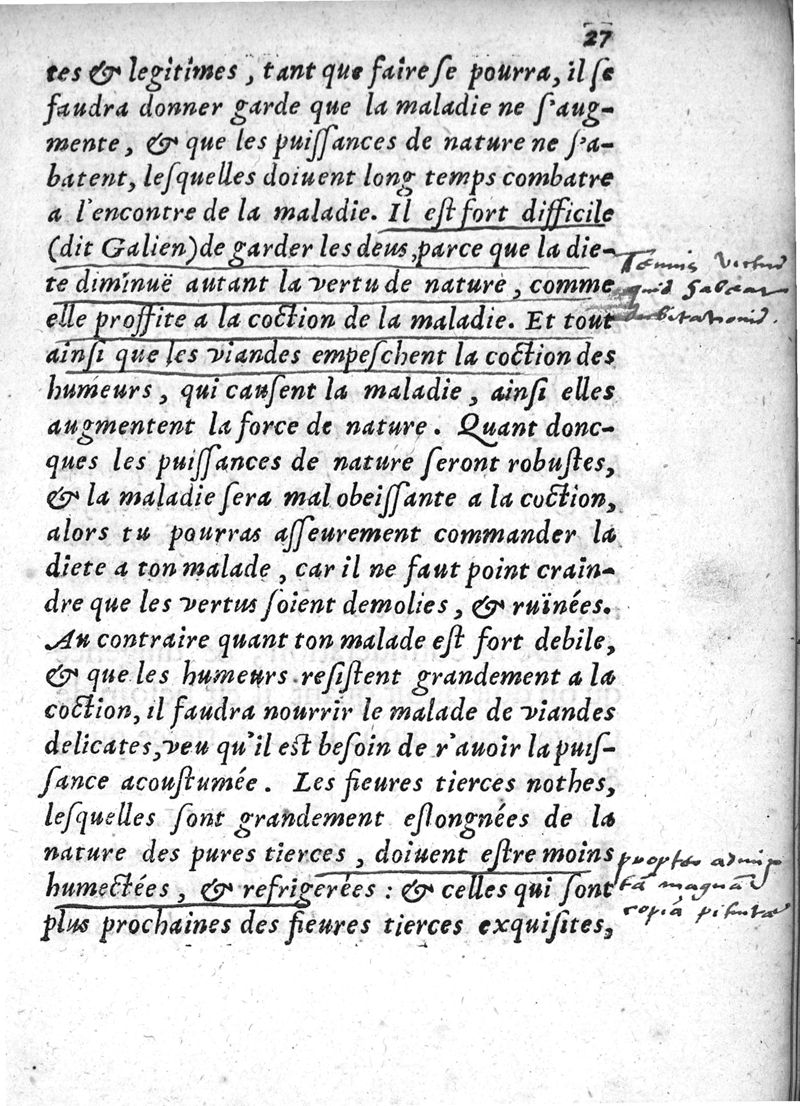 27
tes & legitimes, tant que faire se pourra, il se
faudra donner garde que la maladie ne ſ'aug-
mente, & que les puiſſances de nature ne ſ'a-
batent, leſquelles doiuent long temps combatre
a l'encontre de la maladie. Il eſt fort difficile
(dit Galien) de garder les deus, parce que la die-
te diminuë autant la vertu de nature, comme
elle proffite a la coction de la maladie. Et tout
ainſi que les viandes empeſchent la coction des
humeurs, qui cauſent la maladie, ainſi elles
augmentent la force de nature. Quant donc-
ques les puiſſances de nature ſeront robuſtes,
& la maladie ſera mal obeiſſante a la coction,
alors tu pourras aſſeurement commander la
diete a ton malade, car il ne faut point crain-
dre que les vertus ſoient demolies, & ruïnées.
Au contraire quant ton malade eſt fort debile,
& que les humeurs reſiſtent grandement a la
coction, il faudra nourrir le malade de viandes
delicates, veu qu'il est beſoin de r'auoir la puiſ-
ſance acouſtumée. Les fieures tierces nothes,
leſquelles ſont grandement eſlongnées de la
nature des pures tierces, doiuent eſtre moins
humectées, & refrigerées : & celles qui ſont
plus prochaines des fieures tierces exquiſites,
Tenuis victus
quid
propter admix
tã magnã
copiã pituitæ